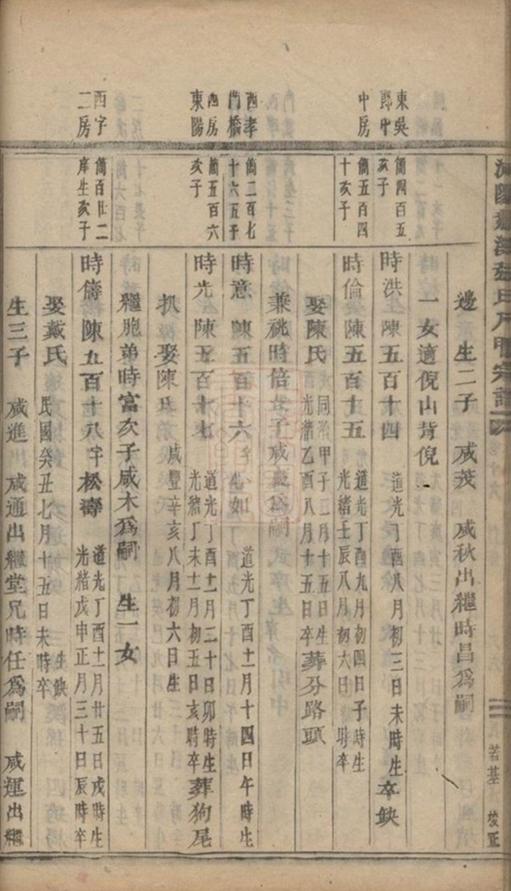 邊 生二子 咸茂 咸秋出繼時昌爲嗣
一女適倪山背倪
東吳郎中
簡四百五亥子
時洪 陳五百十四 道光丁酉八月初三日未時生 卒缺
中房
簡五百四十亥子
時倫 陳五百十五 道光丁酉九月初四日子時生
光緒壬辰八月初六日 時卒
娶陳氏 同治甲子三月十五日生
光緒乙酉八月十五日卒 葬分路頭
兼祧時倍 子咸 爲嗣
西孝門橋
簡二百七十六五子
時意 陳五百十六 字生如 道光丁酉十一月十四日午時生
西房東陽
簡五百六亥子
時光 陳五百十七 道光丁酉十一月三十日卯時生
光緒丁未十一月初五日亥時卒 葬狗尾
扒 娶陳氏 咸豐辛亥八月初六日生
繼胞弟時富次子咸木爲嗣 生一女
西字二房
簡百廿二庠生亥子
時儔 陳五百十八 字松濤 道光丁酉十二月廿五日戌時生
光緒戊申正月三十日辰時卒
娶戴氏 生缺
民國癸丑七月十五日未時卒
生三子 咸進 咸通出繼堂兄時任爲嗣 咸運出繼
若基 校正